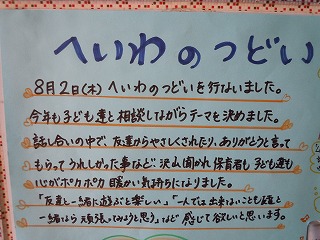 へいわのつどい
8月2日(木) へいわのつどいを行ないました。
今年も子ども達と相談しながらテーマを決めました。
話し合いの中で、友達からやさしくされたり、ありがとうと言って
もらってうれしかった事など、沢山聞かれ保育者も子ども達も
心がポカポカ暖かい気持ちになりました。
「友達と一緒に遊ぶと楽しい」「一人では出来ないことも誰と
一緒なら頑張ってみようと思う」など感じて欲しいと思います。